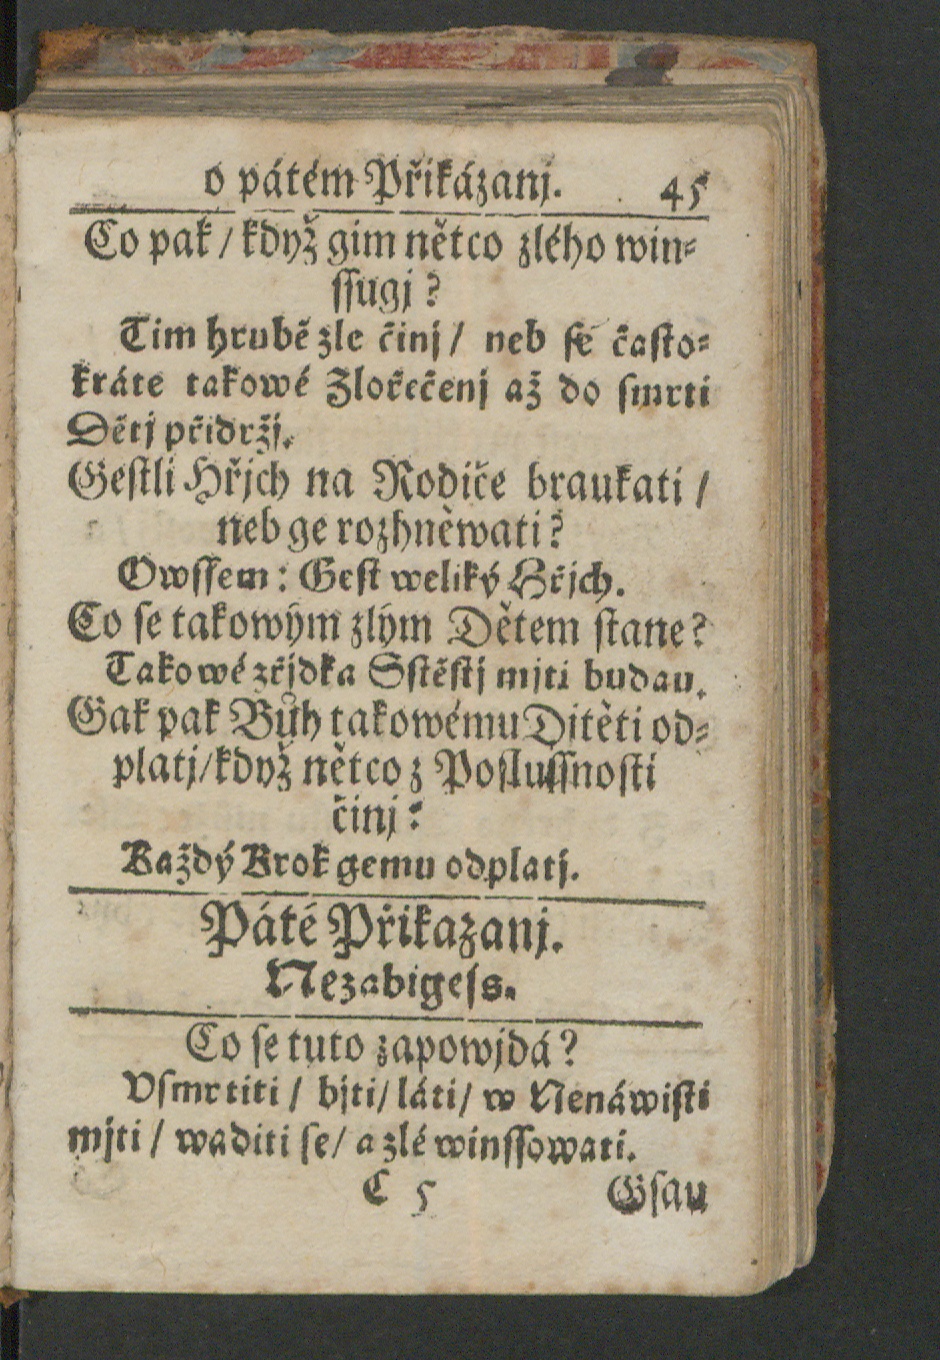 o pátém Přikázanj. 45
Co pak / když gim nětco zlého win-
ssugj?
Tim hrubě zle činj / neb se často-
kráte takowé Zlořečenj až do smrti
Dětj přidržj.
Gestli Hřjch na Rodiče braukati /
neb ge rozhněwati?
Owssem: Gest weliký Hřjch.
Co se takowým zlým Dětem stane?
Takowé zřjdka Sstěstj mjti budau.
Gak pak Bůh takowému Ditěti od-
platj/když nětco z Poslussnosti
činj?
Každý Krok gemu odplatj.
Páté Přikazanj.
Nezabigess.
Co se tuto zapowjdá?
Vsmrtiti / bjti/ láti/ w Nenáwisti
mjti / waditi se/ a zlé winssowati.
C 5 Gsau